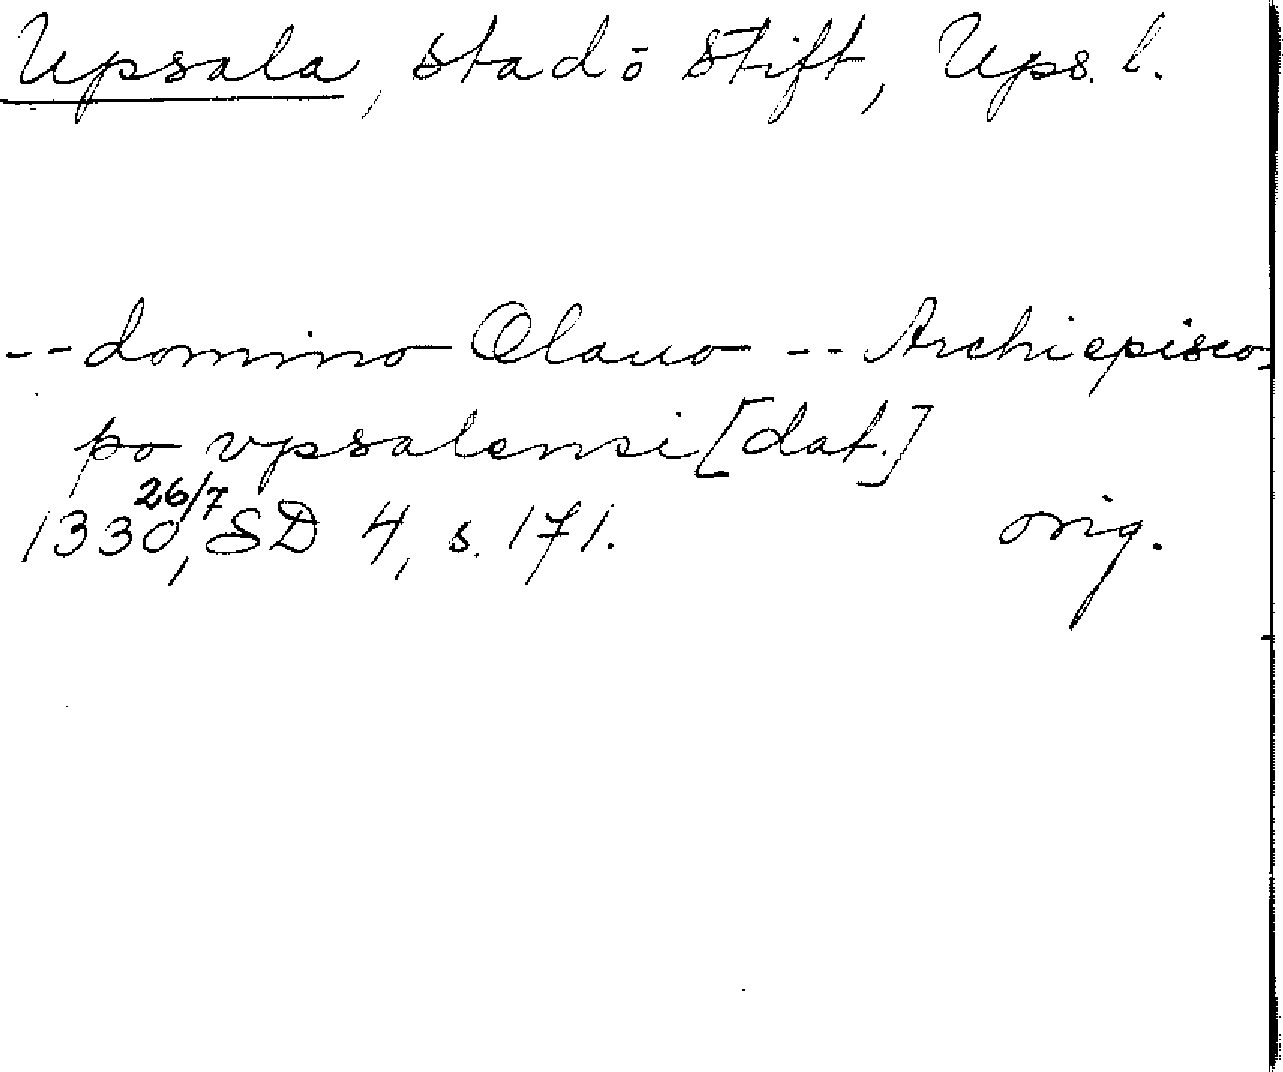 Upsala, stad ö stift, Ups. l.
-- domino Olauo -- Archiepisco-
po vpsalensi [dat.]
1330 26/7, SD 4, s. 171. orig.